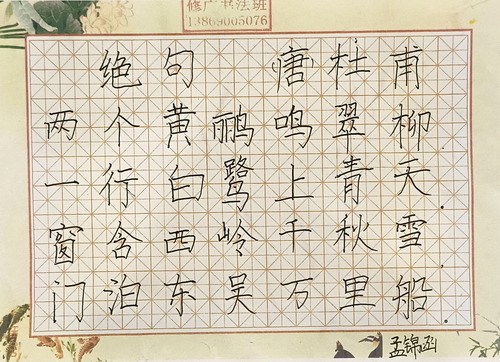 修广书法班
13869005076
绝句 (唐)杜甫
两个黄鹂鸣翠柳
一行白鹭上青天.
窗含西岭千秋雪.
门泊东吴万里船.
孟锦函